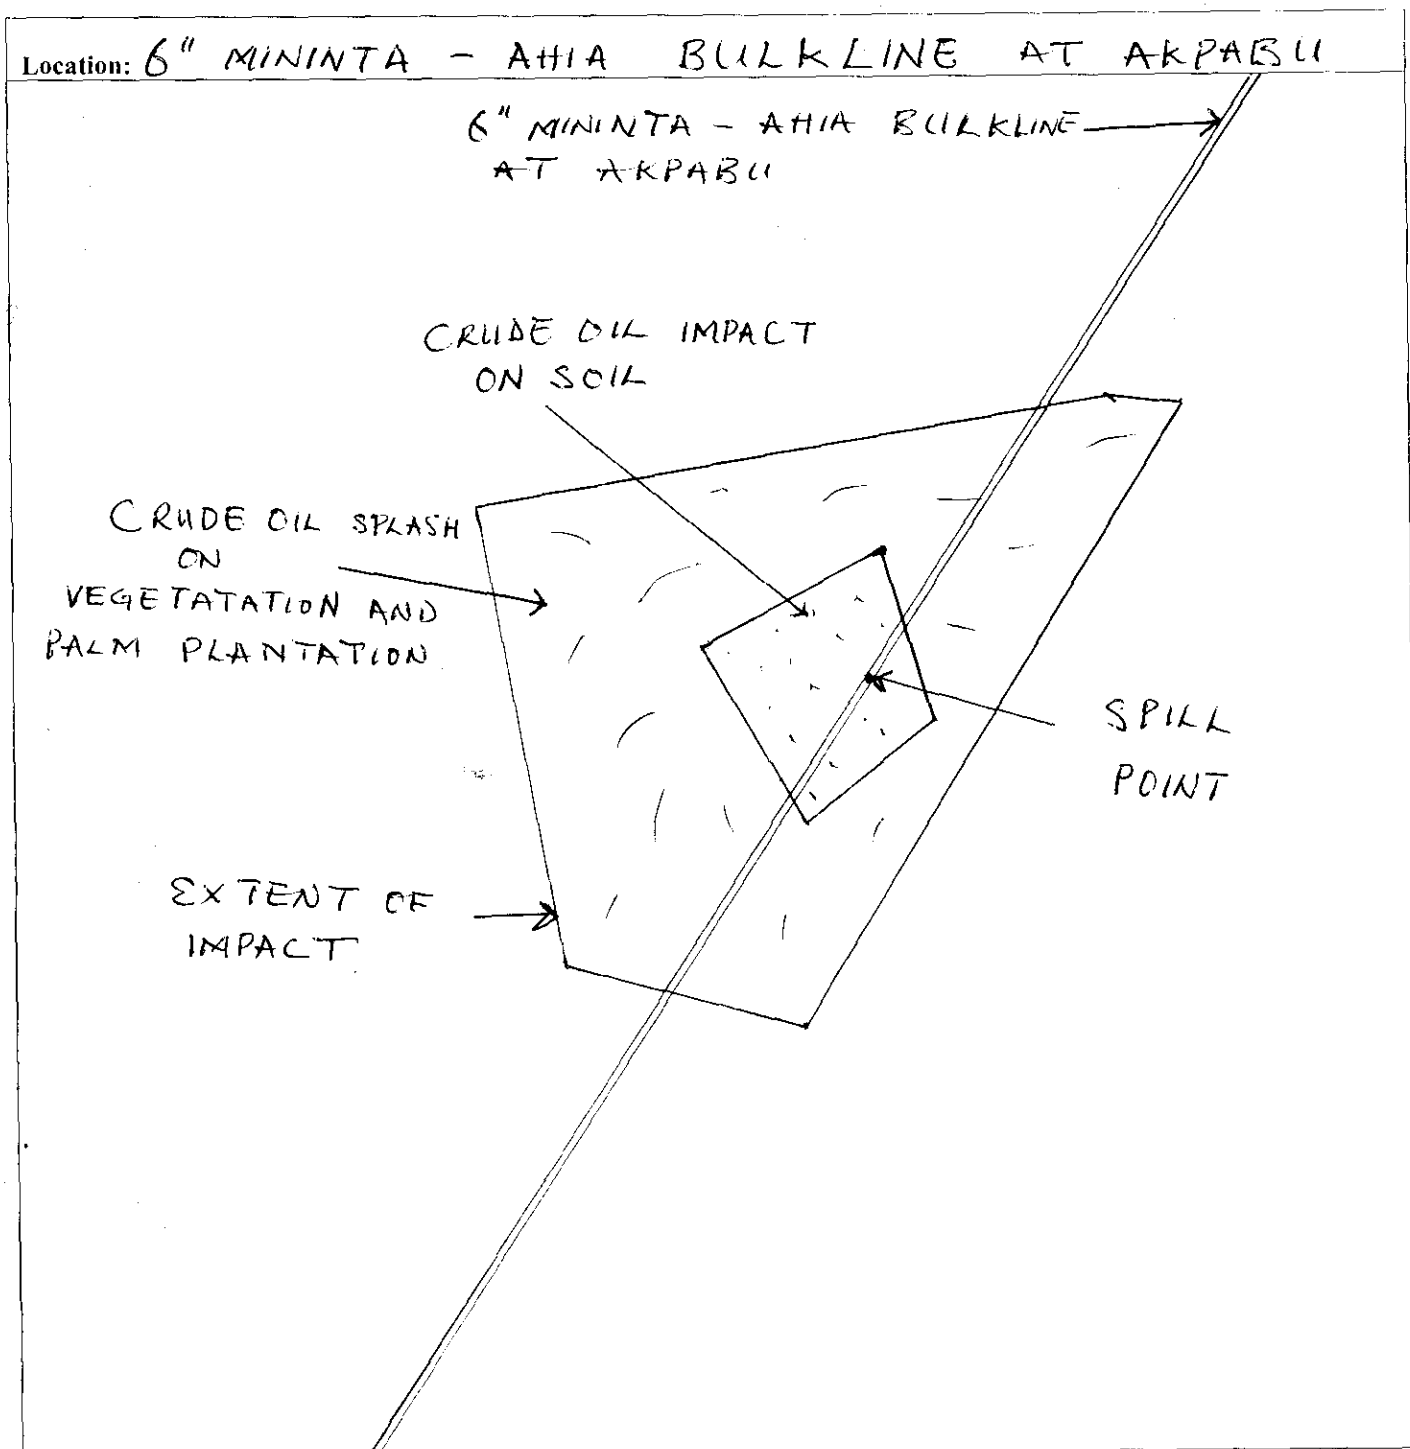 Location: 6" MININTA - AHIA BULKLINE AT AKPABU
6" MININTA - AHIA BULKLINE
AT AKPABU
CRUDE OIL IMPACT
ON SOIL
CRUDE OIL SPLASH
ON
VEGETATATION AND
PALM PLANTATION
SPILL
POINT
EXTENT OF
IMPACT